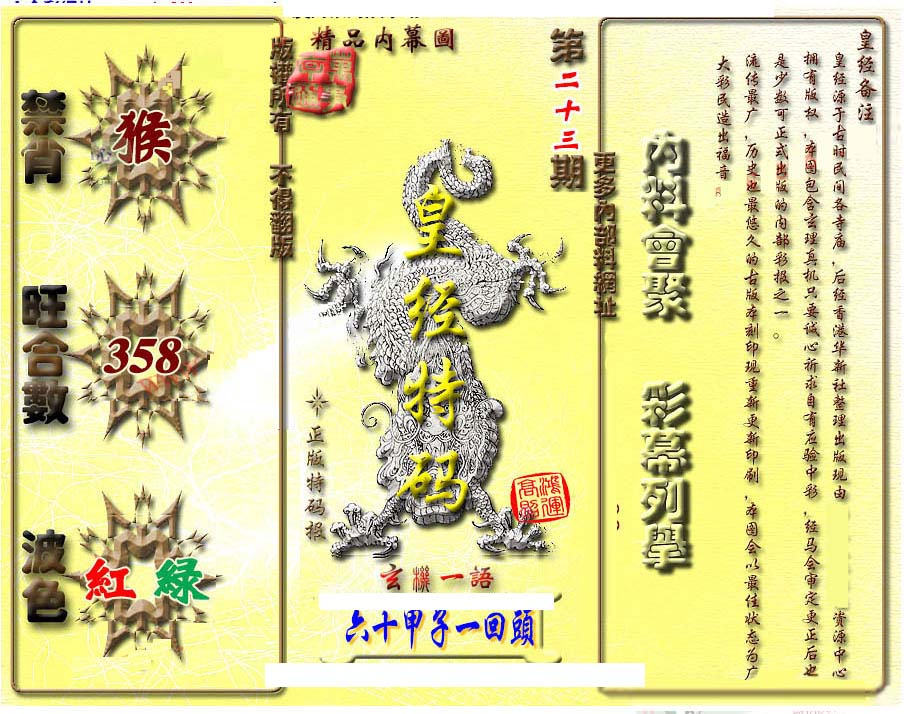 精品内幕圖
版權所有 不得翻版
禁肖
猴
旺合數
358
波色
紅 綠
第二十三期
更多內部料網址
皇经特码
正版特码报
鴻運高照
玄機一語
六十甲子一回頭
內料會聚
彩幕列舉
皇经备注
皇经源于古时民间各寺庙，后经香港华新社整理出版现由 资源中心
拥有版权，本图包含玄理真机只要诚心祈求自有应验中彩，经马会审定更正后也
是少数可正式出版的内部彩报之一。
流传最广，历史也最悠久的古版本刻印现重新更新印刷，本图会以最佳状态为广
大彩民造出福音